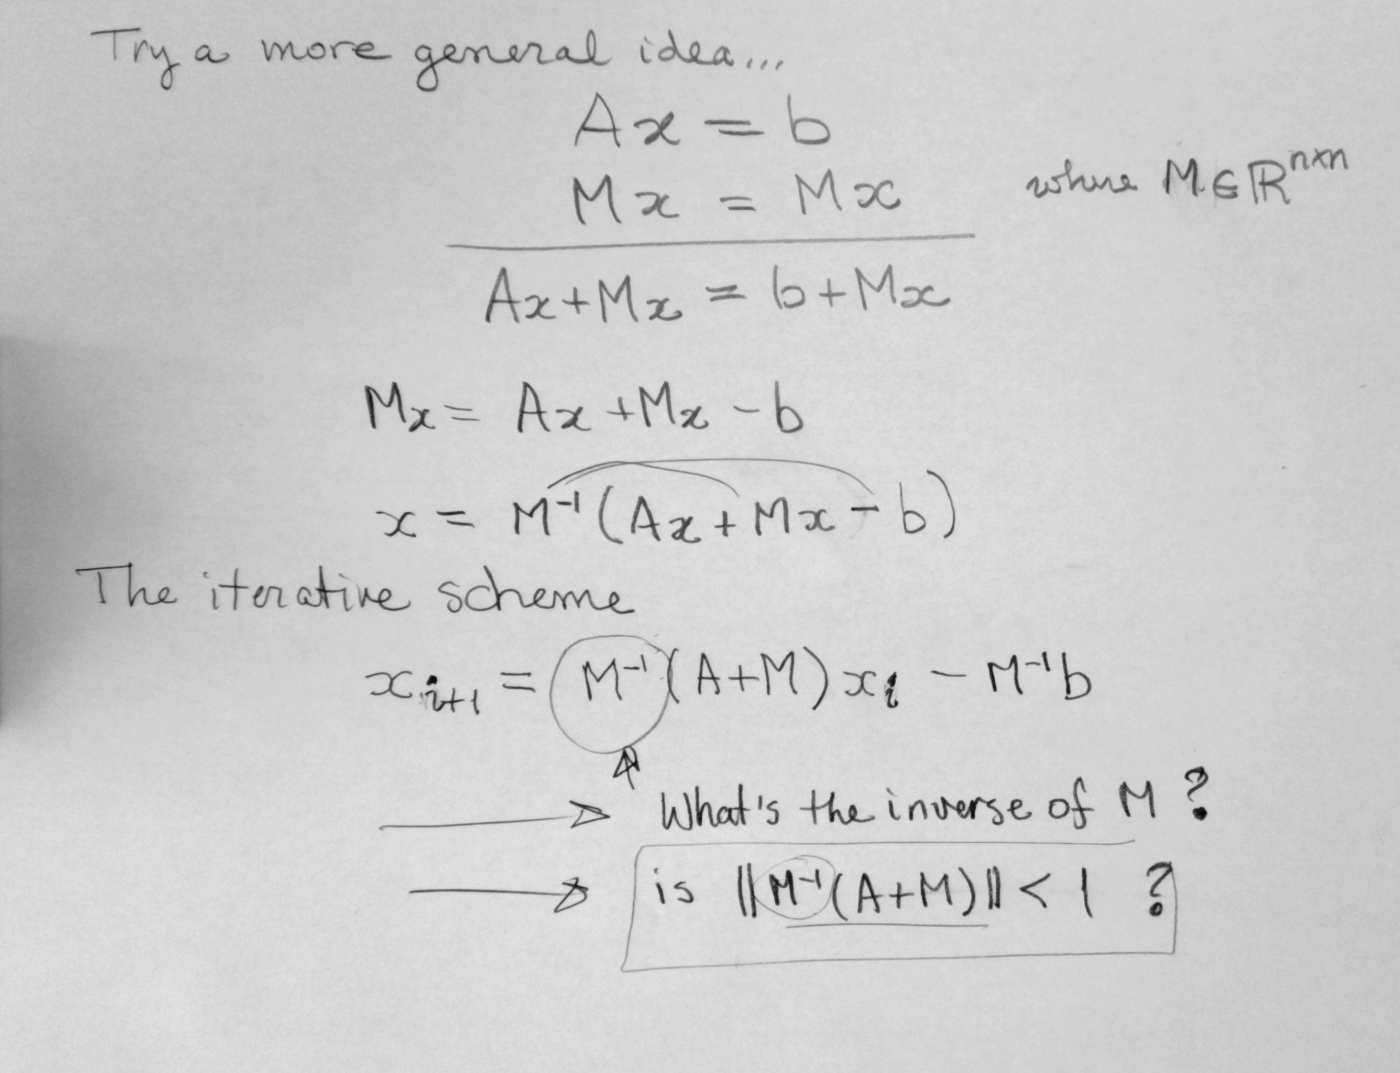 Try a more general idea...
Ax = b
Mx = Mx where M ∈ ℝⁿˣⁿ
Ax+Mx = b+Mx
Mx = Ax + Mx - b
x = M⁻¹(Ax + Mx - b)
The iterative scheme
xᵢ₊₁ = M⁻¹(A+M)xᵢ - M⁻¹b
What's the inverse of M?
is ||M⁻¹(A+M)|| < 1 ?